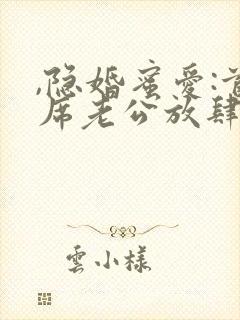 ,隐婚蜜爱:首
席老公放肆
雲小樣